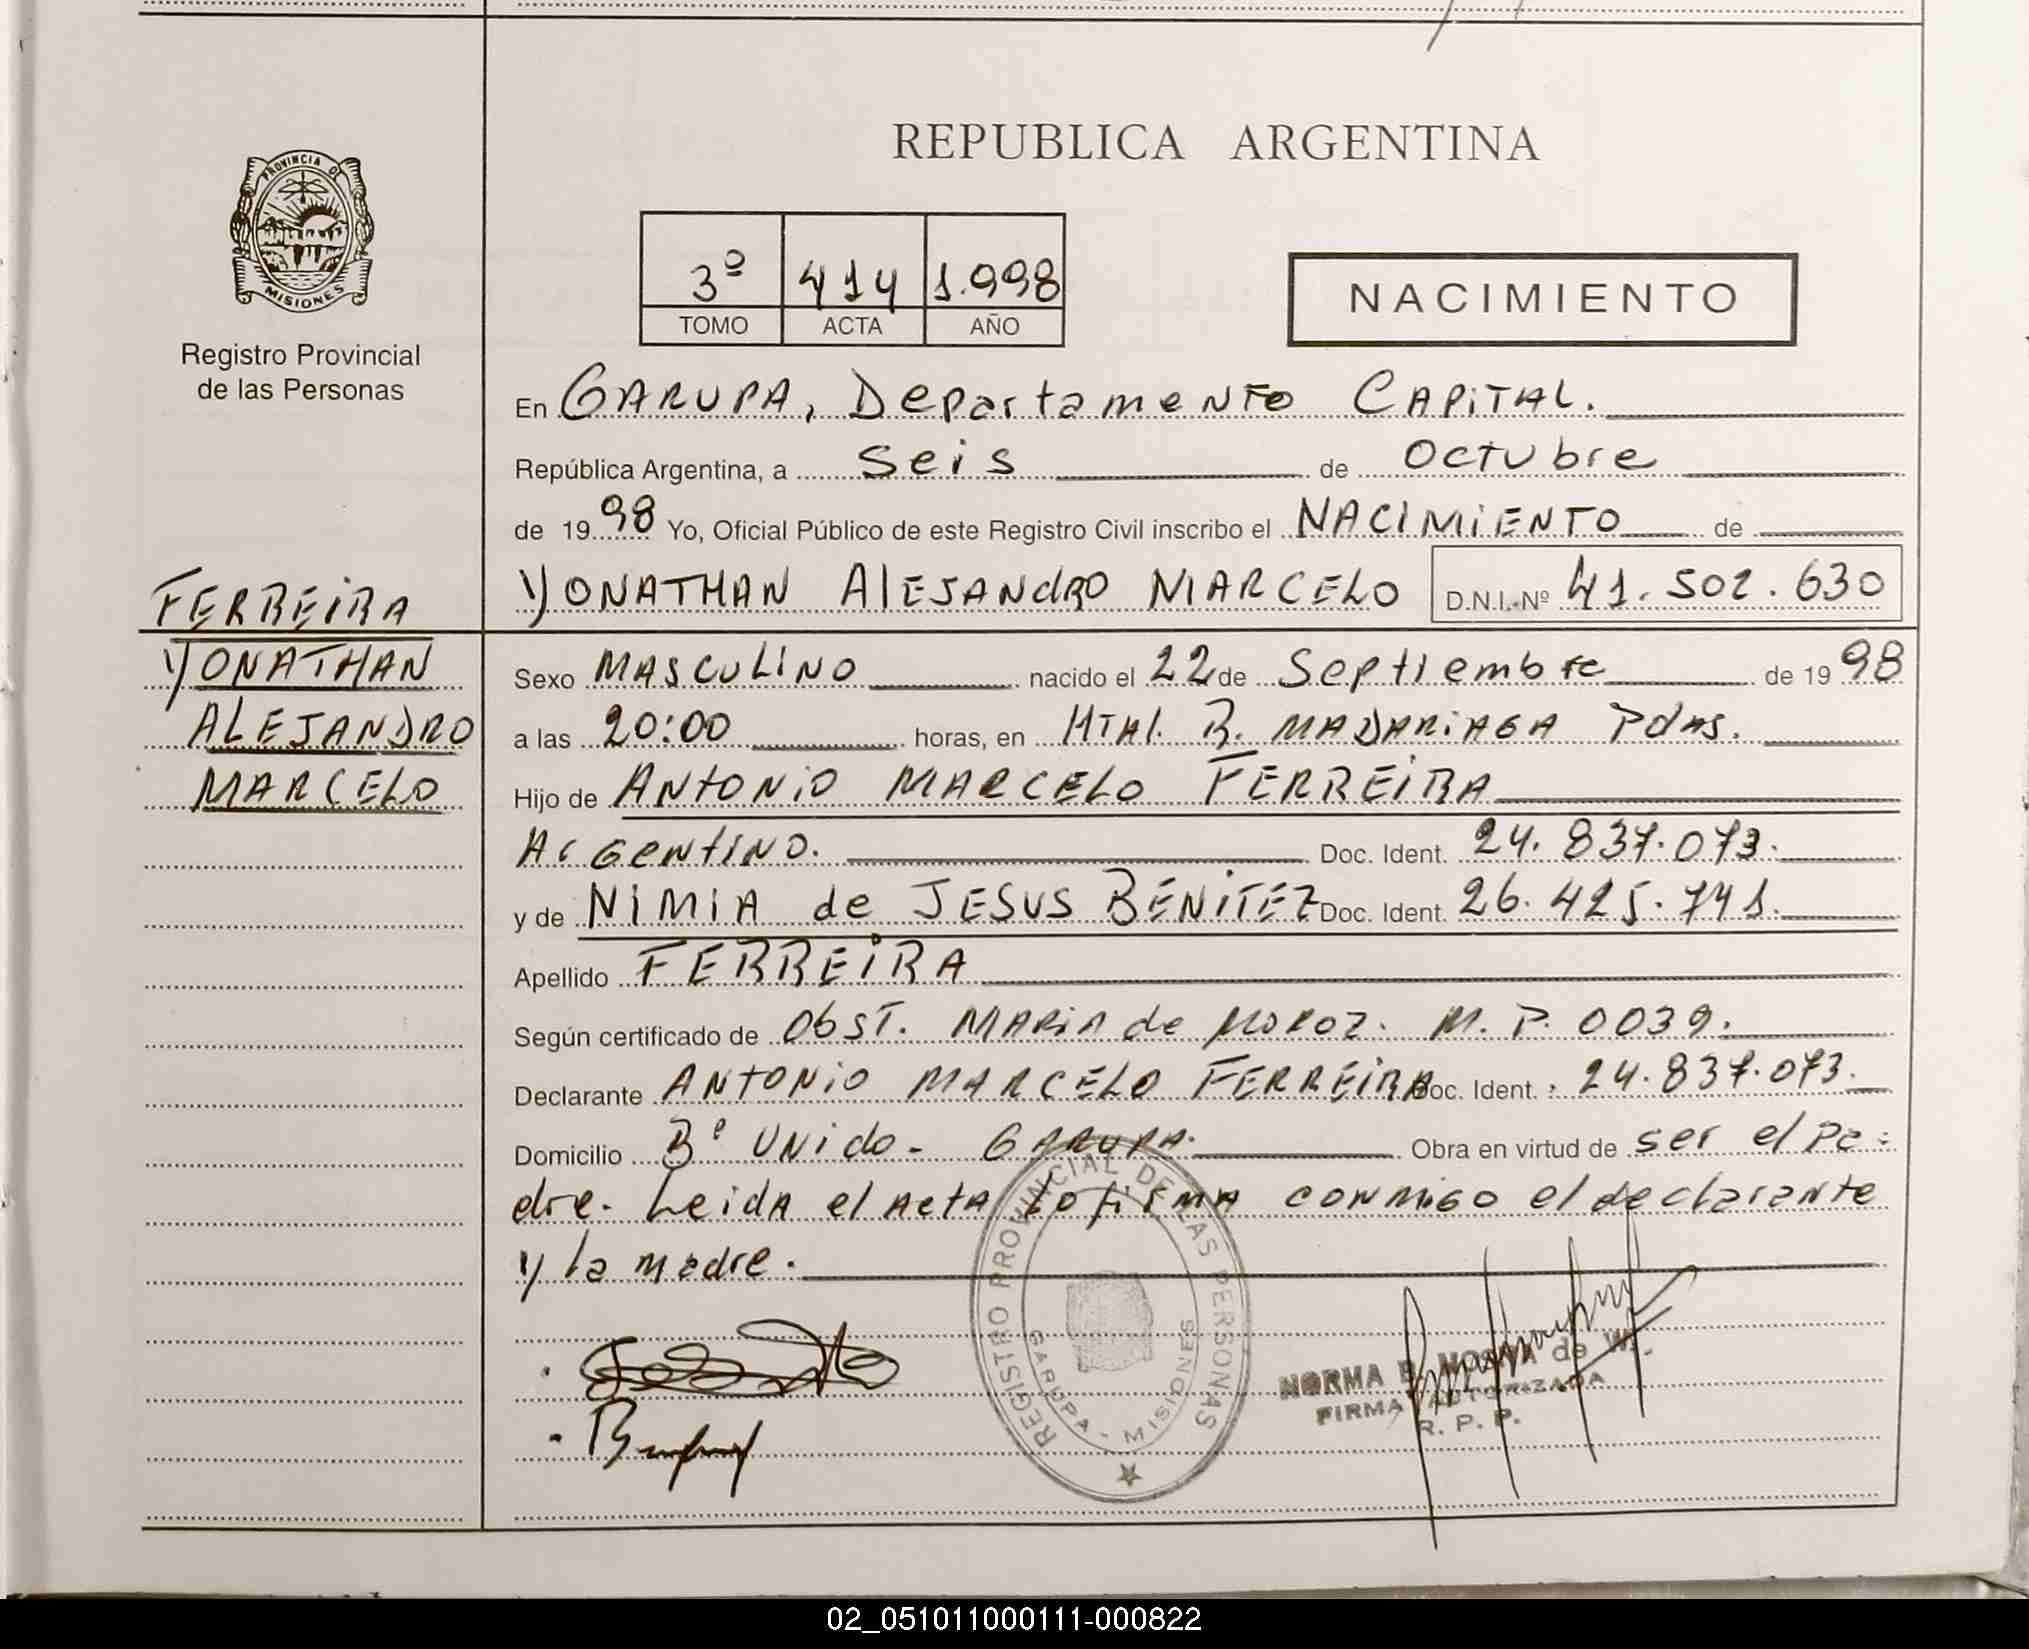 REPUBLICA ARGENTINA
PROVINCIA DE
MISIONES
Registro Provincial
de las Personas
3º 414 1.998
TOMO ACTA AÑO
NACIMIENTO
En GARUPA, Departamento CAPITAL.
República Argentina, a seis de Octubre
de 1998 Yo, Oficial Público de este Registro Civil inscribo el NACIMIENTO de
YONATHAN AlEJANdRO MARCELO D.N.I. Nº 41.502.630
FERREIRA
YONATHAN
ALEJANDRO
MARCELO
Sexo MASCULINO nacido el 22 de Septiembre de 1998
a las 20:00 horas, en Htal. R. MADARIAGA Pdas.
Hijo de ANTONIO MARCELO FERREIRA
Argentino. Doc. Ident. 24.837.073.
y de NIMIA de JESUS BENITEZ Doc. Ident. 26.425.741.
Apellido FERREIRA
Según certificado de Obst. MARIA de MOROZ. M.P. 0039.
Declarante ANTONIO MARCELO FERREIRA Doc. Ident. 24.837.073.
Domicilio Bº UNIdo - GARUPA. Obra en virtud de ser el pa-
dre. Leida el Acta la firma conmigo el declarante
y la madre.
REGISTRO PROVINCIAL DE LAS PERSONAS
GARUPA - MISIONES
NORMA B. de
FIRMA AUTORIZADA
R. P. P.
02_051011000111-000822